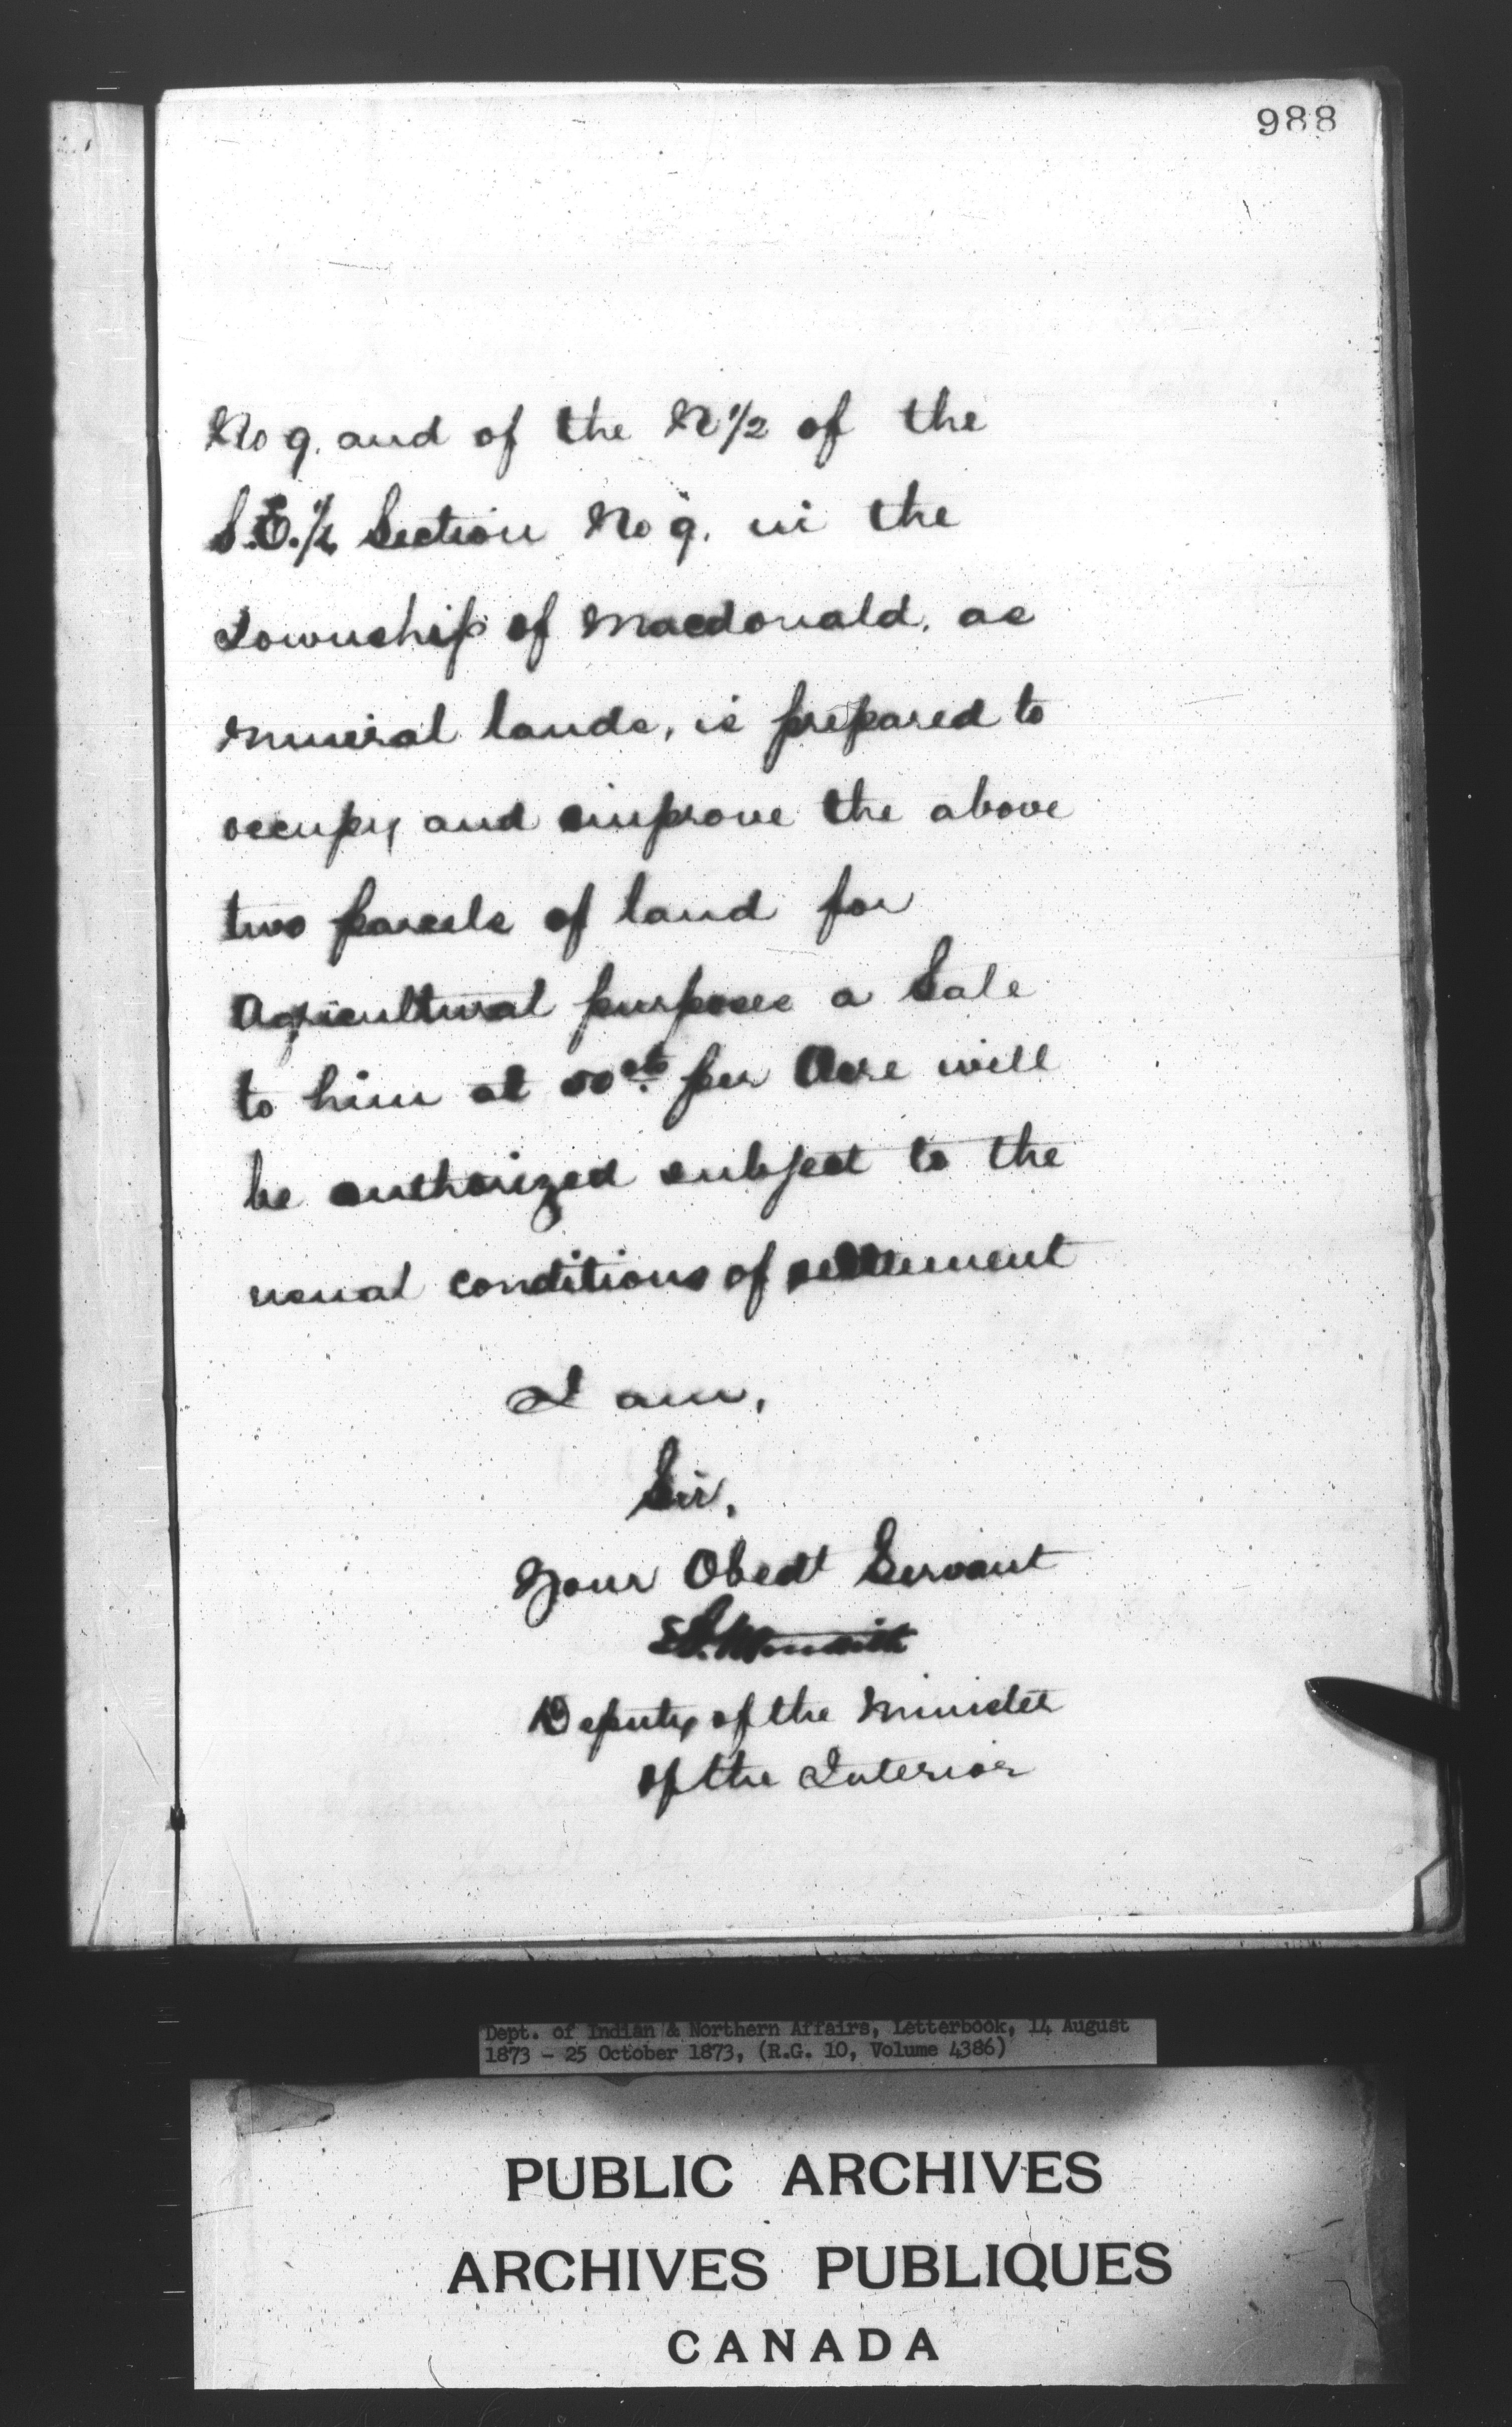 988
No 9. and of the N 1/2 of the
S.E. 1/2 Section No 9. in the
Township of Macdonald. as
Mineral lands, is prepared to
occupy and improve the above
two parcels of land for
Agricultural purposes a Sale
to him at 50cts. per Acre will
be authorized subject to the
usual conditions of settlement
I am,
Sir,
Your Obedt Servant
Deputy of the Minister
of the Interior
Dept. of Indian & Northern Affairs, Letterbook, 14 August
1873 - 25 October 1873, (R.G. 10, Volume 4386)
PUBLIC ARCHIVES
ARCHIVES PUBLIQUES
CANADA